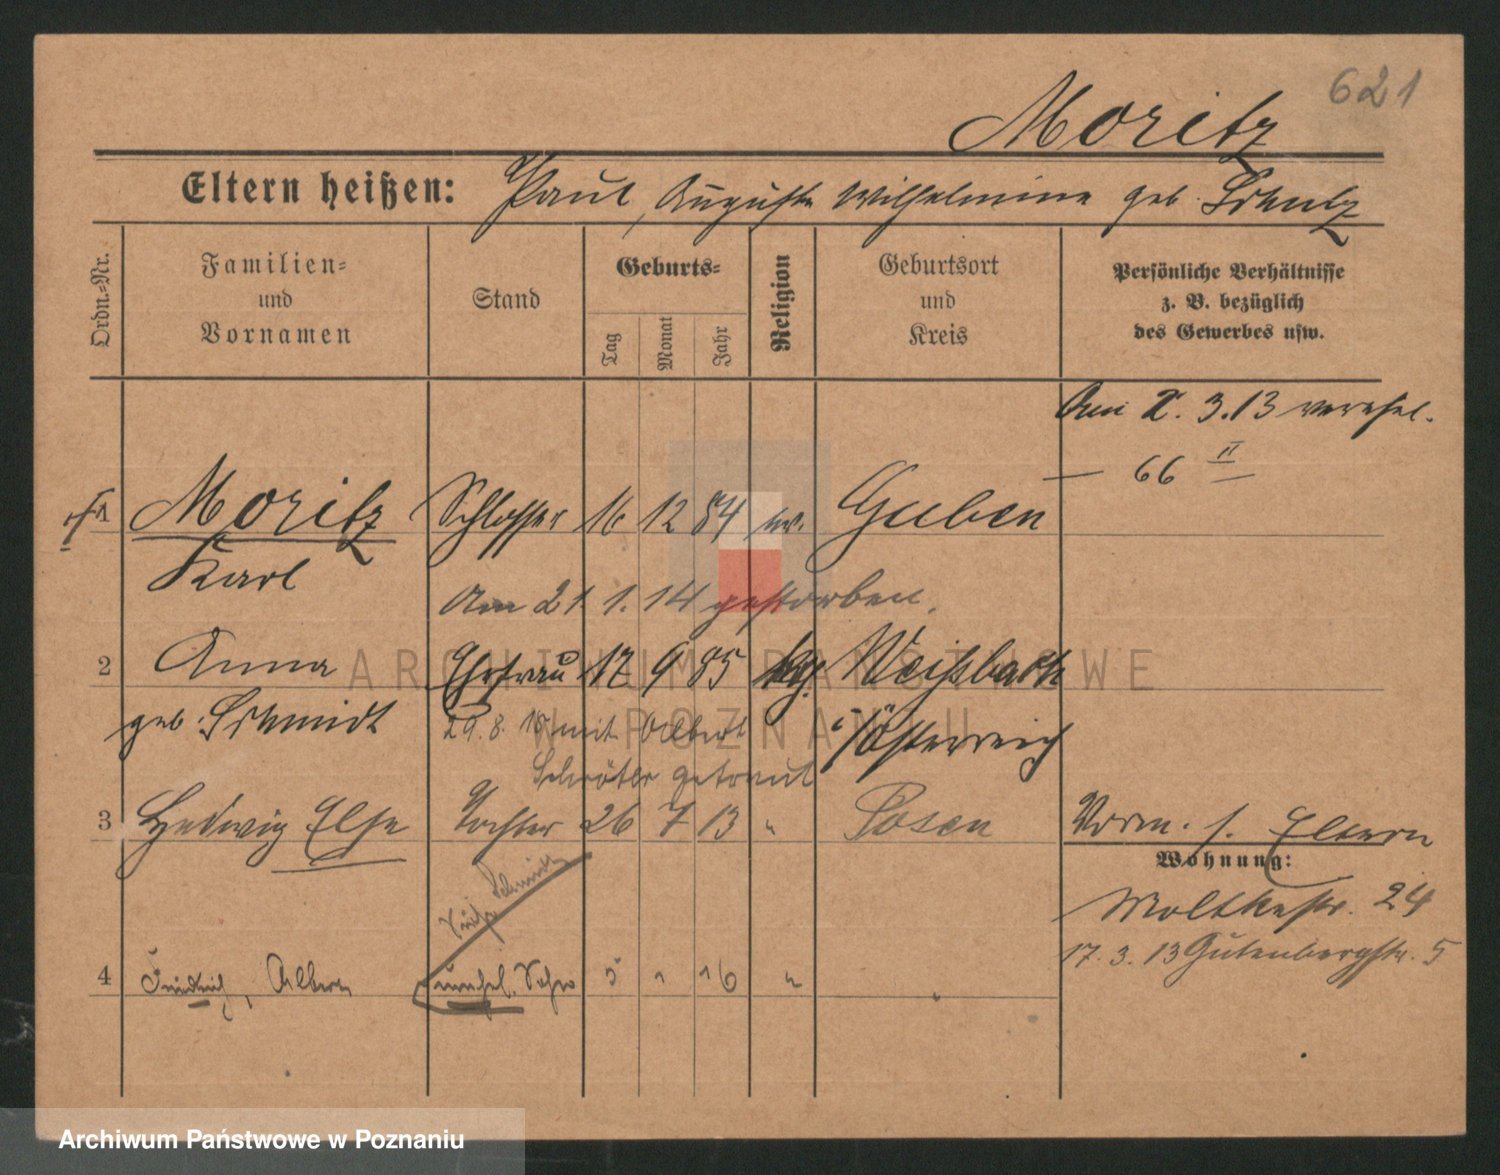 621
Moritz
Eltern heißen: Paul, Auguste Wilhelmine geb. Schulz
Ordn.-Nr.
Familien-
und
Vornamen
Stand
Geburts-
Tag
Monat
Jahr
Religion
Geburtsort
und
Kreis
Persönliche Verhältnisse
z. B. bezüglich
des Gewerbes usw.
Am 2. 3. 13 verehel.
— 66 II —
1 Moritz Schlosser 16 12 84 ev. Guben
Karl
Am 21. 1. 14 gestorben.
2 Anna Ehefrau 12 9 85 Weißbach
geb. Schmidt
29. 8. mit Albert
i/Österreich
Schröter getraut
3 Hedwig Else Tochter 26 7 13 " Posen
Vorm. s. Eltern
Wohnung:
Moltkestr. 24
17. 3. 13 Gutenbergstr. 5
Schmidt
4 Friedrich, Albert unehel. Sohn 5 1 16 " "
ARCHIWUM PAŃSTWOWE
W POZNANIU
Archiwum Państwowe w Poznaniu